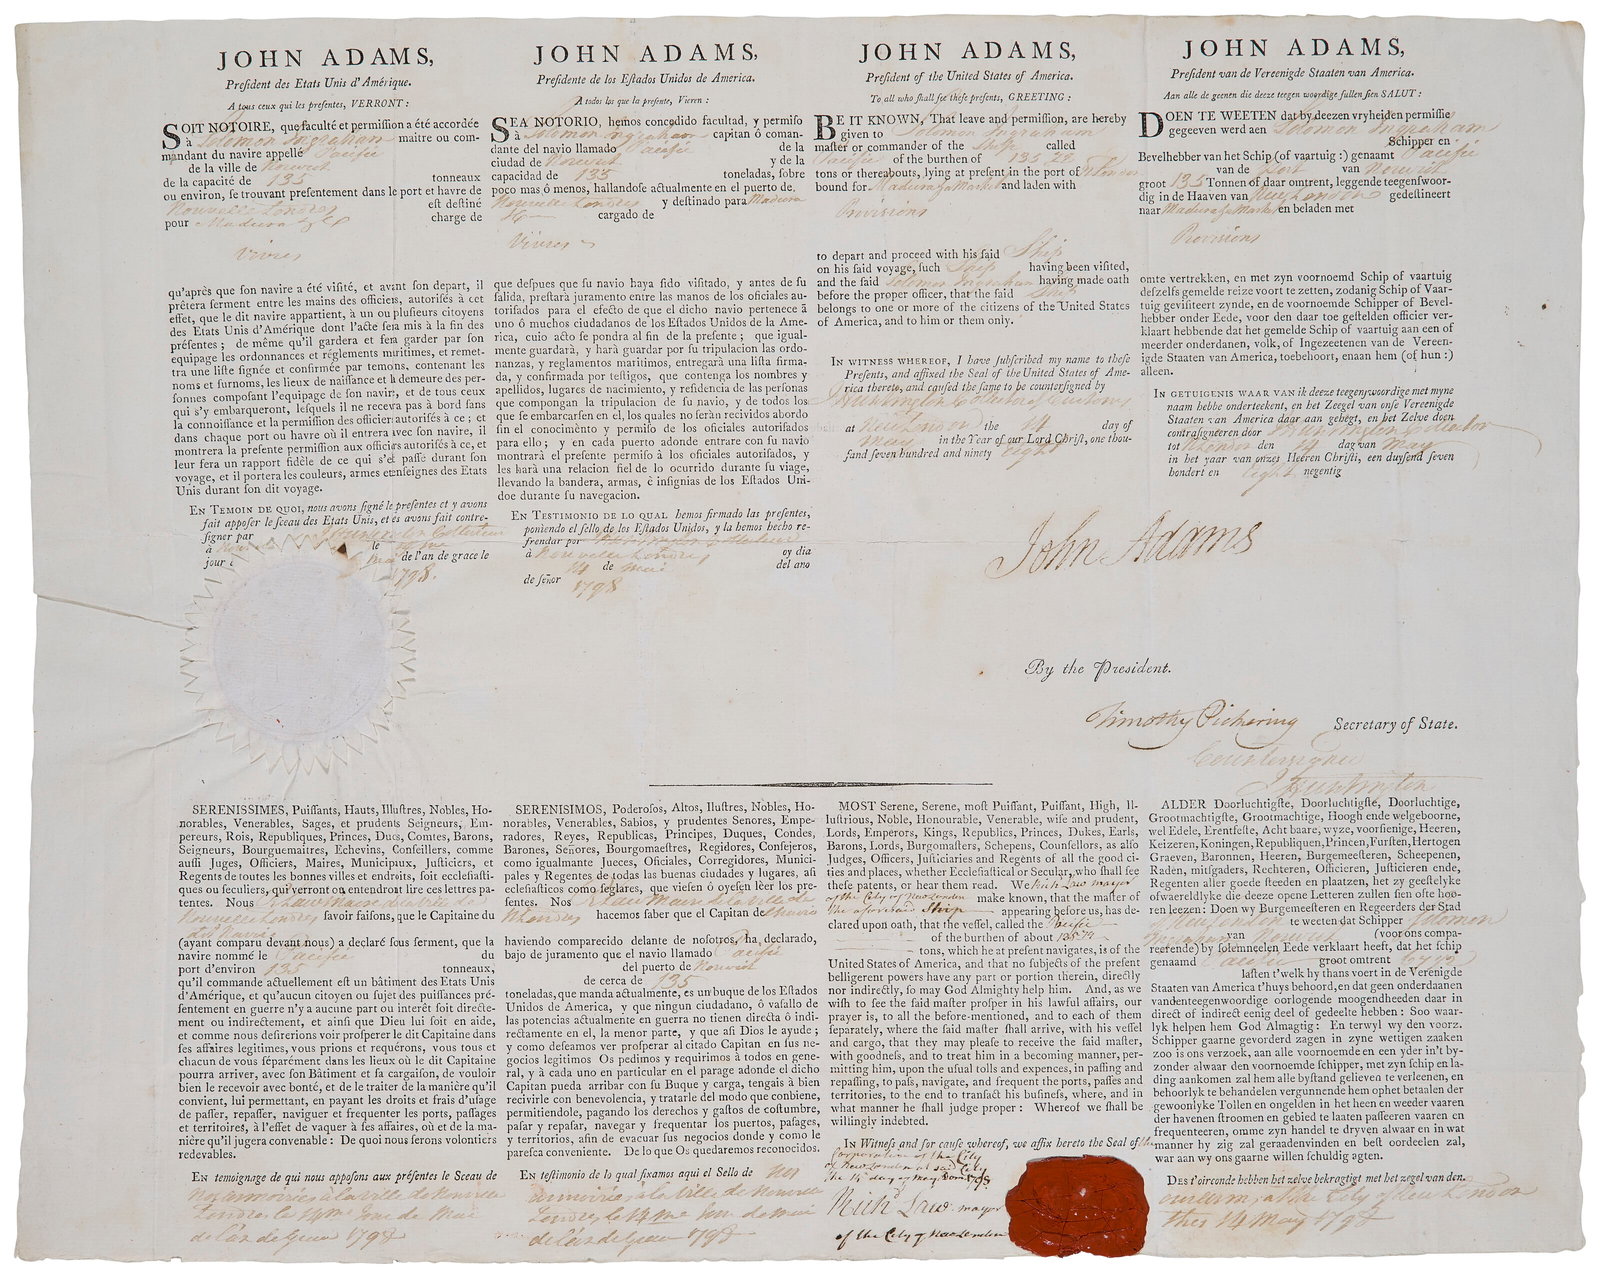 JOHN ADAMS,
Preſident des Etats Unis d'Amérique.
A tous ceux qui les preſentes, VERRONT :
SOIT NOTOIRE, que faculté et permiſſion a été accordée
à Solomon Ingraham maitre ou com-
mandant du navire appellé Pacifie
de la ville de Norwich
de la capacité de 135 tonneaux
ou environ, ſe trouvant preſentement dans le port et havre de
Nouvelle Londres eſt deſtiné
pour Madeira charge de
Vivres
qu'après que ſon navire a été viſité, et avant ſon depart, il
prêtera ſerment entre les mains des officiers, autoriſés à cet
effet, que le dit navire appartient, à un ou pluſieurs citoyens
des Etats Unis d'Amérique dont l'acte ſera mis à la fin des
préſentes ; de même qu'il gardera et fera garder par ſon
equipage les ordonnances et réglements maritimes, et remet-
tra une liſte ſignée et confirmée par temons, contenant les
noms et furnoms, les lieux de naiſſance et la demeure des per-
ſonnes compoſant l'equipage de ſon navire, et de tous ceux
qui s'y embarqueront, leſquels il ne recevra pas à bord ſans
la connoiſſance et la permiſſion des officiers autoriſés à ce ; et
dans chaque port ou havre où il entrera avec ſon navire, il
montrera la preſente permiſſion aux officiers autoriſés à ce, et
leur fera un rapport fidèle de ce qui s'eſt paſſé durant ſon
voyage, et il portera les couleurs, armes et enſeignes des Etats
Unis durant ſon dit voyage.
EN TEMOIN DE QUOI, nous avons ſigné le preſentes et y avons
fait appoſer le ſceau des Etats Unis, et és avons fait contre-
ſigner par Collecteur
à le
jour de l'an de grace le
1798.
JOHN ADAMS,
Preſidente de los Eſtados Unidos de America.
A todos los que la preſente, Vieren :
SEA NOTORIO, hemos concedido facultad, y permiſo
à Solomon Ingraham capitan ô coman-
dante del navio llamado Pacifie de la
ciudad de Norwich y de la
capacidad de 135 toneladas, ſobre
poco mas ô menos, hallandoſe actualmente en el puerto de.
Nouvelle Londres y deſtinado para Madeira
cargado de
Vivres
que deſpues que ſu navio haya ſido viſitado, y antes de ſu
ſalida, preſtará juramento entre las manos de los oficiales au-
toriſados para el efecto de que el dicho navio pertenece à
uno ô muchos ciudadanos de los Eſtados Unidos de la Ame-
rica, cuio acto ſe pondra al fin de la preſente ; que igual-
mente guardará, y hará guardar por ſu tripulacion las ordo-
nanzas, y reglamentos maritimos, entregará una liſta firma-
da, y confirmada por teſtigos, que contenga los nombres y
apellidos, lugares de nacimiento, y reſidencia de las perſonas
que compongan la tripulacion de ſu navio, y de todos los
que ſe embarcarſen en el, los quales no ſerán recividos abordo
ſin el conocimènto y permiſo de los oficiales autoriſados
para ello ; y en cada puerto adonde entrare con ſu navio
montrará el preſente permiſo à los oficiales autoriſados, y
les hará una relacion fiel de lo ocurrido durante ſu viage,
llevando la bandera, armas, è inſignias de los Eſtados Uni-
dos durante ſu navegacion.
EN TESTIMONIO DE LO QUAL hemos firmado las preſentes,
poniendo el ſello de los Eſtados Unidos, y la hemos hecho re-
frendar por
à Nouvelle Londres oy dia
14 de mai del ano
de ſeñor 1798
JOHN ADAMS,
Preſident of the United States of America.
To all who ſhall ſee theſe preſents, GREETING :
BE IT KNOWN, That leave and permiſſion, are hereby
given to Solomon Ingraham
maſter or commander of the Ship called
Pacifie of the burthen of 135 72
tons or thereabouts, lying at preſent in the port of N London
bound for Madeira & a Market and laden with
Proviſions
to depart and proceed with his ſaid Ship
on his ſaid voyage, ſuch Ship having been viſited,
and the ſaid Solomon Ingraham having made oath
before the proper officer, that the ſaid Ship
belongs to one or more of the citizens of the United States
of America, and to him or them only.
IN WITNESS WHEREOF, I have ſubſcribed my name to theſe
Preſents, and affixed the Seal of the United States of Ame-
rica thereto, and cauſed the ſame to be counterſigned by
J Huntington Collector of Cuſtoms
at New London the 14 day of
May in the Year of our Lord Chriſt, one thou-
ſand ſeven hundred and ninety eight
JOHN ADAMS,
Preſident van de Vereenigde Staaten van America.
Aan alle de geenen die deeze teegen woordige ſullen ſien SALUT :
DOEN TE WEETEN dat by deezen vryheiden permiſſie
gegeeven werd aen Solomon Ingraham
Schipper en
Bevelhebber van het Schip (of vaartuig :) genaamt Pacifie
van de Port van Norwich
groot 135 Tonnen of daar omtrent, leggende teegenſwoor-
dig in de Haaven van New London gedeſtineert
naar Madeira & a Market en beladen met
Proviſions
omte vertrekken, en met zyn voornoemd Schip of vaartuig
deſzelfs gemelde reize voort te zetten, zodanig Schip of Vaar-
tuig geviſiteert zynde, en de voornoemde Schipper of Bevel-
hebber onder Eede, voor den daar toe geſtelden officier ver-
klaart hebbende dat het gemelde Schip of vaartuig aan een of
meerder onderdanen, volk, of Ingezeetenen van de Vereen-
igde Staaten van America, toebehoort, enaan hem (of hun :)
alleen.
IN GETUIGENIS WAAR VAN ik deeze teegenywoordige met myne
naam hebbe onderteekent, en het Zeegel van onſe Vereenigde
Staaten van America daar aan gehegt, en het Zelve doen
contraſigneren door J Huntington Collector
tot N London den 14 dag van May
in het yaar van onzes Heeren Chriſti, een duyſend ſeven
hondert en Eight negentig
John Adams
By the Preſident.
Timothy Pickering Secretary of State.
Counterſigned
J Huntington
SERENISSIMES, Puiſſants, Hauts, Illuſtres, Nobles, Ho-
norables, Venerables, Sages, et prudents Seigneurs, Em-
pereurs, Rois, Républiques, Princes, Ducs, Comtes, Barons,
Seigneurs, Bourguemaitres, Echevins, Conſeillers, comme
auſſi Juges, Officiers, Maires, Municipaux, Juſticiers, et
Regents de toutes les bonnes villes et endroits, ſoit eccleſiaſti-
ques ou ſeculiers, qui verront ou entendront lire ces lettres pa-
tentes. Nous R Law Maire de la ville de
Nouvelle Londres ſavoir faiſons, que le Capitaine du
dit Navire
(ayant comparu devant nous) a declaré ſous ſerment, que la
navire nommé le Pacifie du
port d'environ 135 tonneaux,
qu'il commande actuellement eſt un bâtiment des Etats Unis
d'Amérique, et qu'aucun citoyen ou ſujet des puiſſances pré-
ſentement en guerre n'y a aucune part ou interêt ſoit directe-
ment ou indirectement, et ainſi que Dieu lui ſoit en aide,
et comme nous deſirerions voir proſperer le dit Capitaine dans
ſes affaires legitimes, vous prions et requérons, vous tous et
chacun de vous ſéparément dans les lieux où le dit Capitaine
pourra arriver, avec ſon Bâtiment et ſa cargaiſon, de vouloir
bien le recevoir avec bonté, et de le traiter de la manière qu'il
convient, lui permettant, en payant les droits et frais d'uſage
de paſſer, repaſſer, naviguer et frequenter les ports, paſſages
et territoires, à l'effet de vaquer à ſes affaires, où et de la ma-
nière qu'il jugera convenable : De quoi nous ſerons volontiers
redevables.
EN temoignage de qui nous appoſons aux préſentes le Sceau de
nos armoiries à la ville de Nouvelle
Londres le 14me Jour de Mai
de l'an de Grace 1798
SERENISIMOS, Poderoſos, Altos, Iluſtres, Nobles, Ho-
norables, Venerables, Sabios, y prudentes Senores, Empe-
radores, Reyes, Republicas, Principes, Duques, Condes,
Barones, Señores, Bourgomaeſtres, Regidores, Conſejeros,
como igualmante Jueces, Oficiales, Corregidores, Munici-
pales y Regentes de todas las buenas ciudades y lugares, aſi
ecleſiaſticos como ſeglares, que vieſen ô oyeſen lèer los pre-
ſentes. Nos R Law Maire de la ville de
N Londres hacemos ſaber que el Capitan de Navire
haviendo comparecido delante de noſotros, ha declarado,
bajo de juramento que el navio llamado Pacifie
del puerto de Norwich
de cerca de 135
toneladas, que manda actualmente, es un buque de los Eſtados
Unidos de America, y que ningun ciudadano, ô vaſallo de
las potencias actualmente en guerra no tienen directa ô indi-
rectamente en el, la menor parte, y que aſi Dios le ayude ;
y como deſeamos ver proſperar al citado Capitan en ſus ne-
gocios legitimos Os pedimos y requirimos à todos en gene-
ral, y à cada uno en particular en el parage adonde el dicho
Capitan pueda arribar con ſu Buque y carga, tengais à bien
recivirle con benevolencia, y tratarle del modo que conbiene,
permitiendole, pagando los derechos y gaſtos de coſtumbre,
paſar y repaſar, navegar y frequentar los puertos, paſages,
y territorios, afin de evacuar ſus negocios donde y como le
pareſca conveniente. De lo que Os quedaremos reconocidos.
En teſtimonio de lo qual fixamos aqui el Sello de nos
armoiries à la ville de Nouvelle
Londres le 14me Jour de mai
de l'an de Grace 1798
MOST Serene, Serene, moſt Puiſſant, Puiſſant, High, Il-
luſtrious, Noble, Honourable, Venerable, wiſe and prudent,
Lords, Emperors, Kings, Republics, Princes, Dukes, Earls,
Barons, Lords, Burgomaſters, Schepens, Counſellors, as alſo
Judges, Officers, Juſticiaries and Regents of all the good ci-
ties and places, whether Eccleſiaſtical or Secular, who ſhall ſee
theſe patents, or hear them read. We Rich Law mayor
of the City of New London make known, that the maſter of
the aforeſaid Ship appearing before us, has de-
clared upon oath, that the veſſel, called the Pacifie
of the burthen of about 135 72
tons, which he at preſent navigates, is of the
United States of America, and that no ſubjects of the preſent
belligerent powers have any part or portion therein, directly
nor indirectly, ſo may God Almighty help him. And, as we
wiſh to ſee the ſaid maſter proſper in his lawful affairs, our
prayer is, to all the before-mentioned, and to each of them
ſeparately, where the ſaid maſter ſhall arrive, with his veſſel
and cargo, that they may pleaſe to receive the ſaid maſter,
with goodneſs, and to treat him in a becoming manner, per-
mitting him, upon the uſual tolls and expences, in paſſing and
repaſſing, to paſs, navigate, and frequent the ports, paſſes and
territories, to the end to tranſact his buſineſs, where, and in
what manner he ſhall judge proper : Whereof we ſhall be
willingly indebted.
In Witneſs and for cauſe whereof, we affix hereto the Seal of the
Corporation of the City
of New London at ſaid City
the 14 day of May 1798
Rich Law mayor
of the City of New London
ALDER Doorluchtigſte, Doorluchtigſte, Doorluchtige,
Grootmachtigſte, Grootmachtige, Hoogh ende welgeboorne,
wel Edele, Erentfeſte, Acht baare, wyze, voorſienige, Heeren,
Keizeren, Koningen, Republiquen, Princen, Furſten, Hertogen
Graeven, Baronnen, Heeren, Burgemeeſteren, Scheepenen,
Raden, mitſgaders, Rechteren, Officieren, Juſticieren ende,
Regenten aller goede ſteeden en plaatzen, het zy geeſtelyke
ofwaereldlyke die deeze opene Letteren zullen ſien ofte hoo-
ren leezen : Doen wy Burgemeeſteren en Regeerders der Stad
New London te weeten dat Schipper Solomon
Ingraham van Norwich (voor ons compa-
reerende) by ſolemneelen Eede verklaart heeft, dat het ſchip
genaamd Pacifie groot omtrent
laſten t'welk hy thans voert in de Verenigde
Staaten van America t'huys behoord, en dat geen onderdaanen
vandenteegenwoordige oorlogende moogendheeden daar in
direct of indirect eenig deel of gedeelte hebben : Soo waar-
lyk helpen hem God Almagtig : En terwyl wy den voorz.
Schipper gaarne gevorderd zagen in zyne wettigen zaaken
zoo is ons verzoek, aan alle voornoemde en een yder in't by-
zonder alwaar den voornoemde ſchipper, met zyn ſchip en la-
ding aankomen zal hem alle byſtand gelieven te verleenen, en
behoorlyk te behandelen vergunnende hem ophet betaalen der
gewoonlyke Tollen en ongelden in het heen en weeder vaaren
der havenen ſtroomen en gebied te laaten paſſeeren vaaren en
frequenteeren, omme zyn handel te dryven alwaar en in wat
manner hy zig zal geraadenvinden en beſt oordeelen zal,
waar aan wy ons gaarne willen ſchuldig agten.
DES t'oirconde hebben het zelve bekragtigt met het zegel van den.
at the City of New London
this 14 May 1798